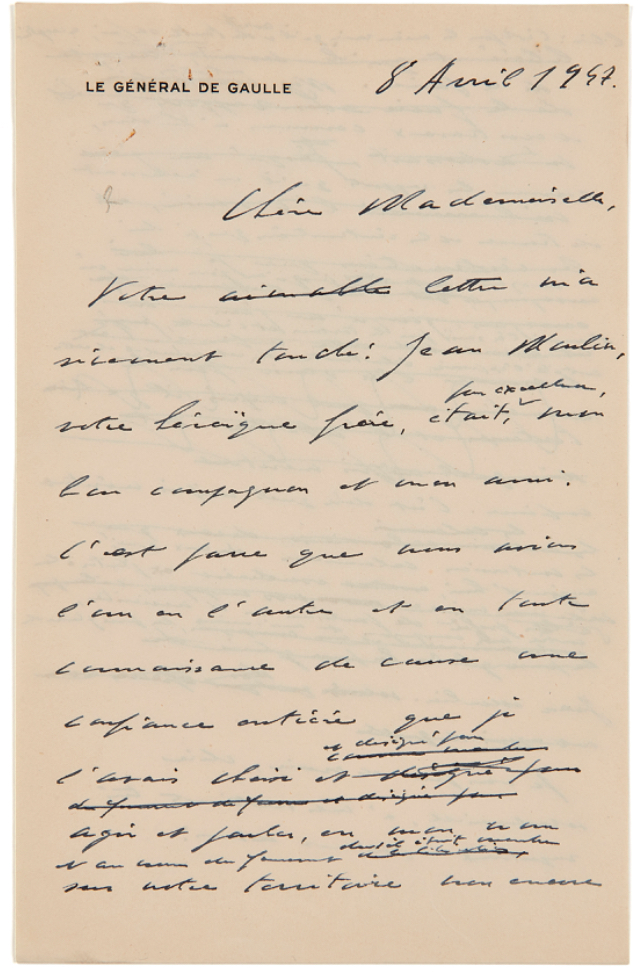 LE GÉNÉRAL DE GAULLE
8 Avril 1947.
Chère Mademoiselle,
Votre aimable lettre m'a
vivement touché. Jean Moulin,
par excellence,
votre héroïque frère, était, mon
bon compagnon et mon ami.
C'est parce que nous avions
l'un en l'autre et en toute
connaissance de cause une
confiance entière que je
et désigné pour
comme membre
l'avais choisi et désigné pour
agir et parler, en mon nom
et au nom du
dont il était membre
sur notre territoire non encore